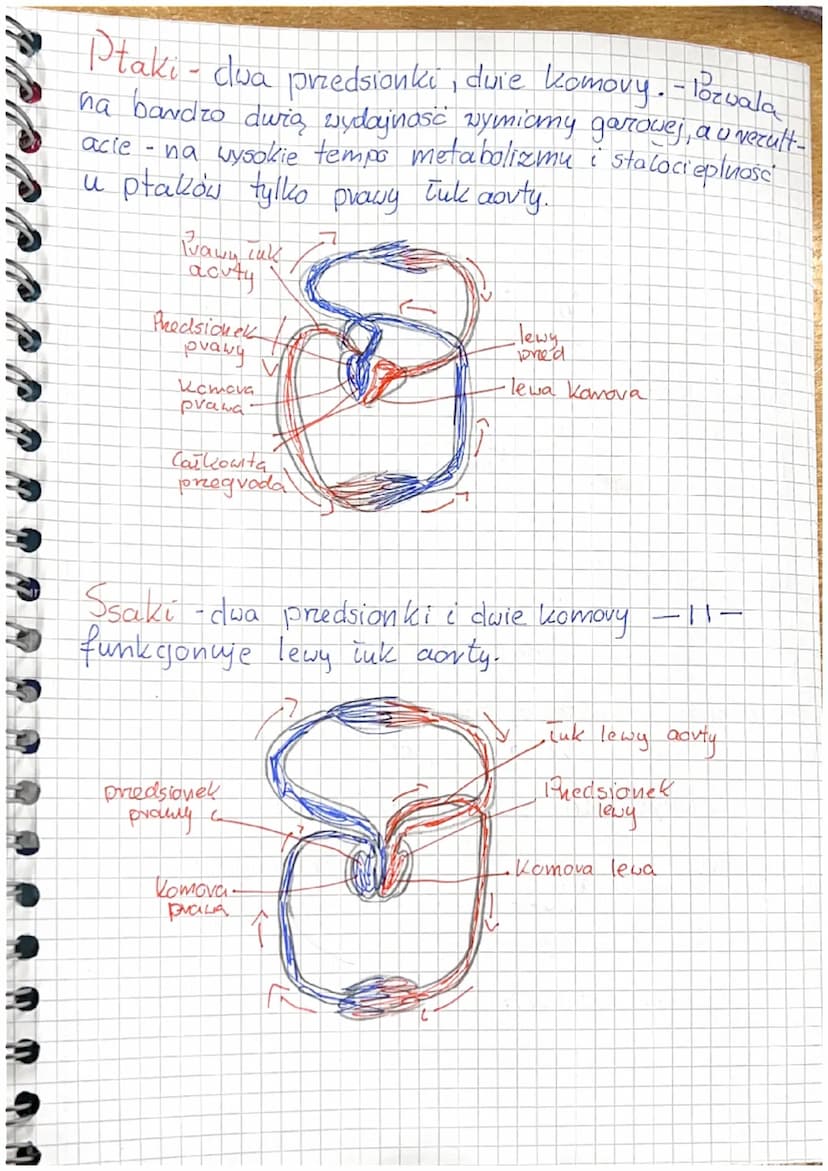 Ptaki - dwa przedsionki, dwie komory. - Pozwala
na bardzo dużą wydajność wymiany gazowej, a w rezult-
acie - na wysokie tempo metabolizmu i stałocieplność
u ptaków tylko prawy łuk aorty.
Prawy łuk
aorty
Przedsionek
prawy
Komora
prawa
Całkowita
przegroda
lewy
przed
lewa komora
Ssaki - dwa przedsionki i dwie komory —11—
funkcjonuje lewy łuk aorty.
łuk lewy aorty
przedsionek
prawy
Przedsionek
lewy
Komora lewa
Komora
prawa